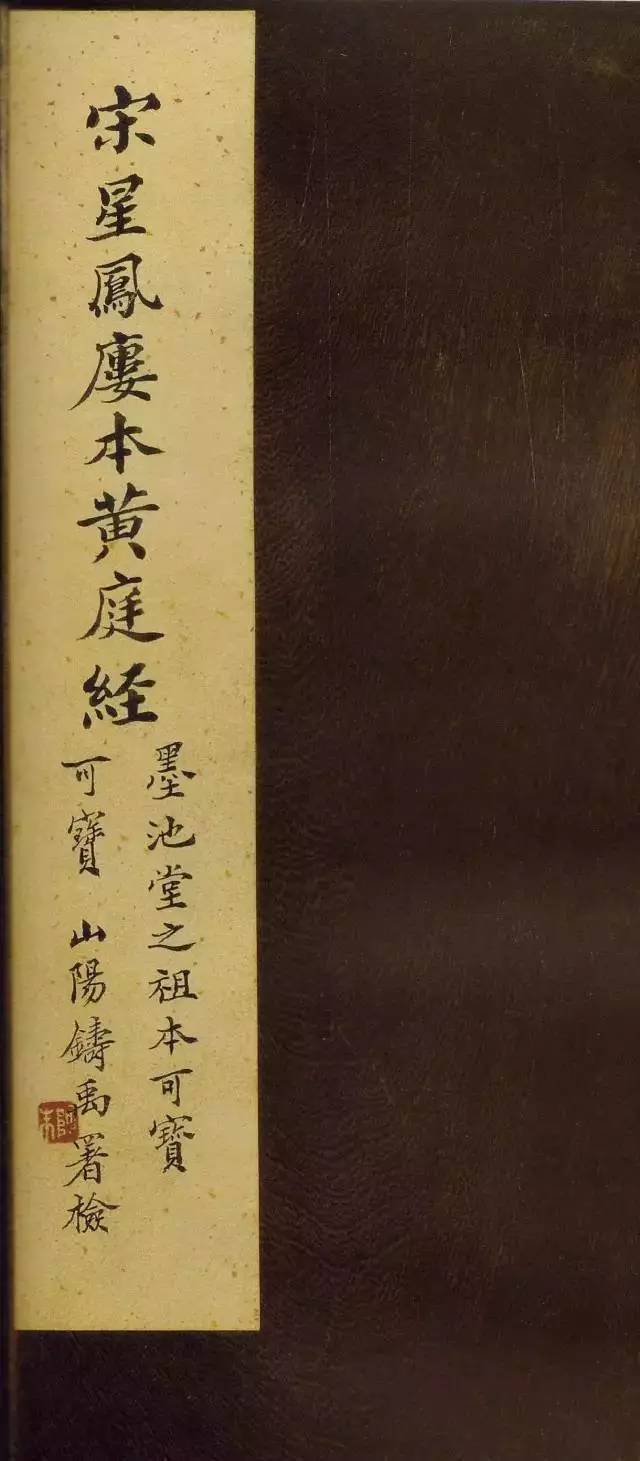 宋星鳳廔本黃庭経
墨池堂之祖本可寶
可寶 山陽鑄禹署檢